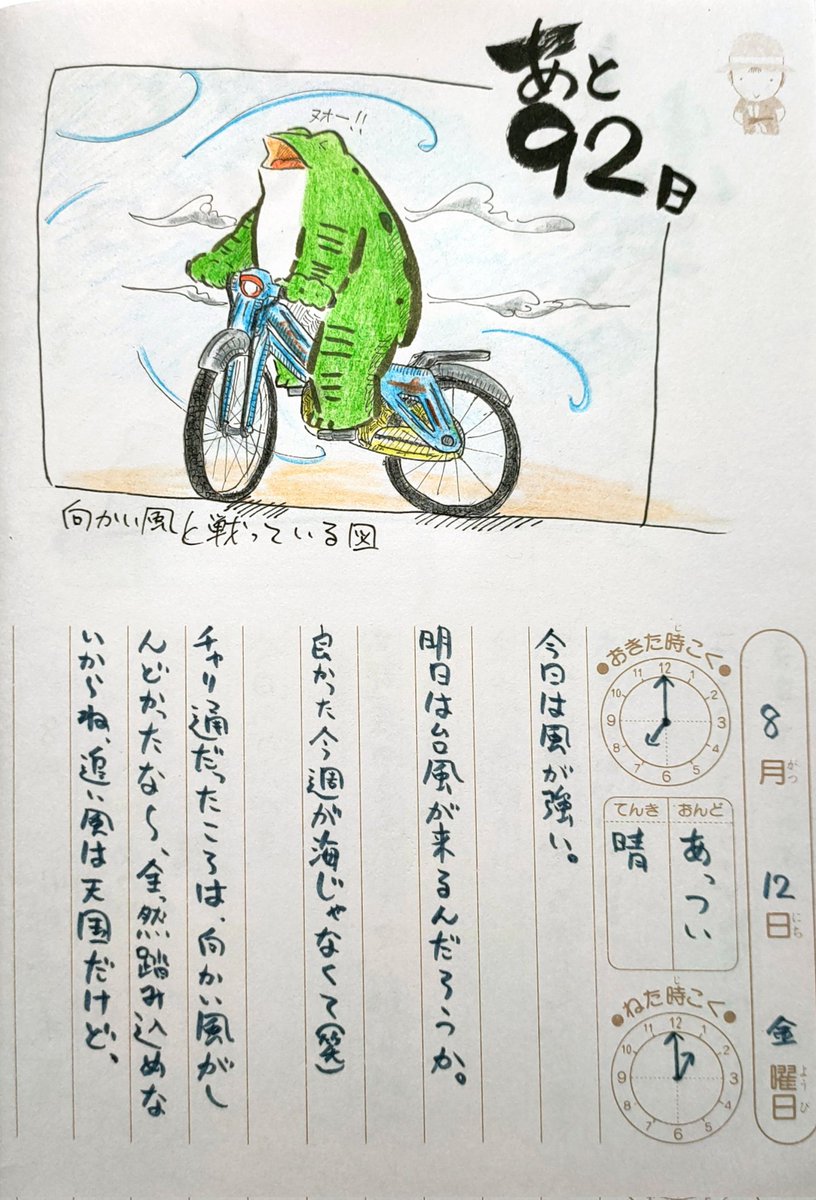 あと
92日
ヌオー!!
向かい風と戦っている図
8月がつ
12日にち
金曜日ようび
おきた時じこく
12
1
2
3
4
5
6
7
8
9
10
11
おんど
あっつい
てんき
晴
ねた時じこく
12
1
2
3
4
5
6
7
8
9
10
11
今日は風が強い。
明日は台風が来るんだろうか。
良かった今週が海じゃなくて(笑)
チャリ通だったころは、向かい風がし
んどかったな〜、全然踏み込めな
いからね、追い風は天国だけど、